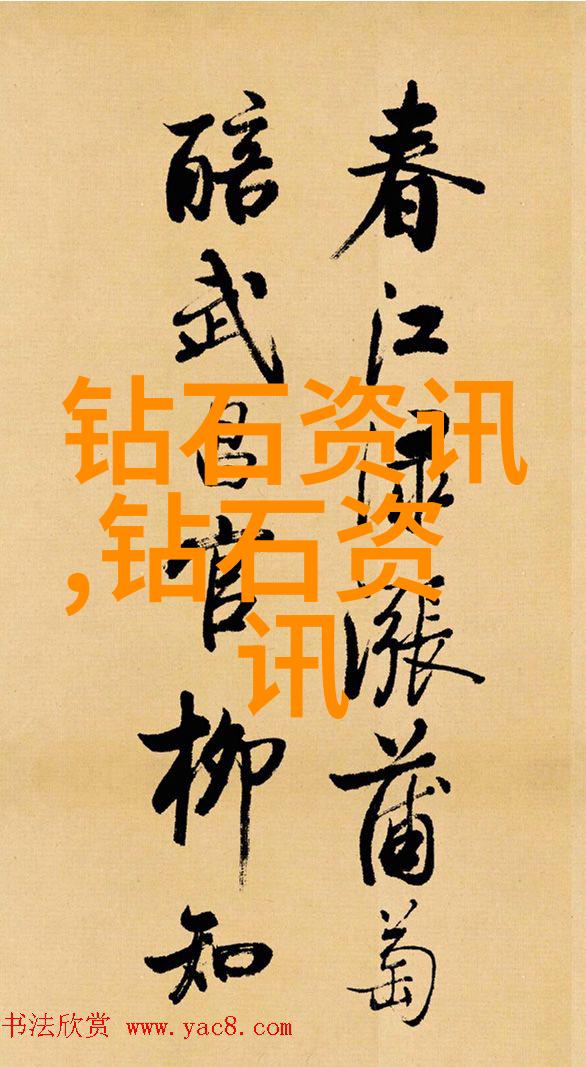 春江渌漲蒲萄
醅武昌官柳知
钻石资讯
,钻石资
讯
书法欣赏 www.yac8.com